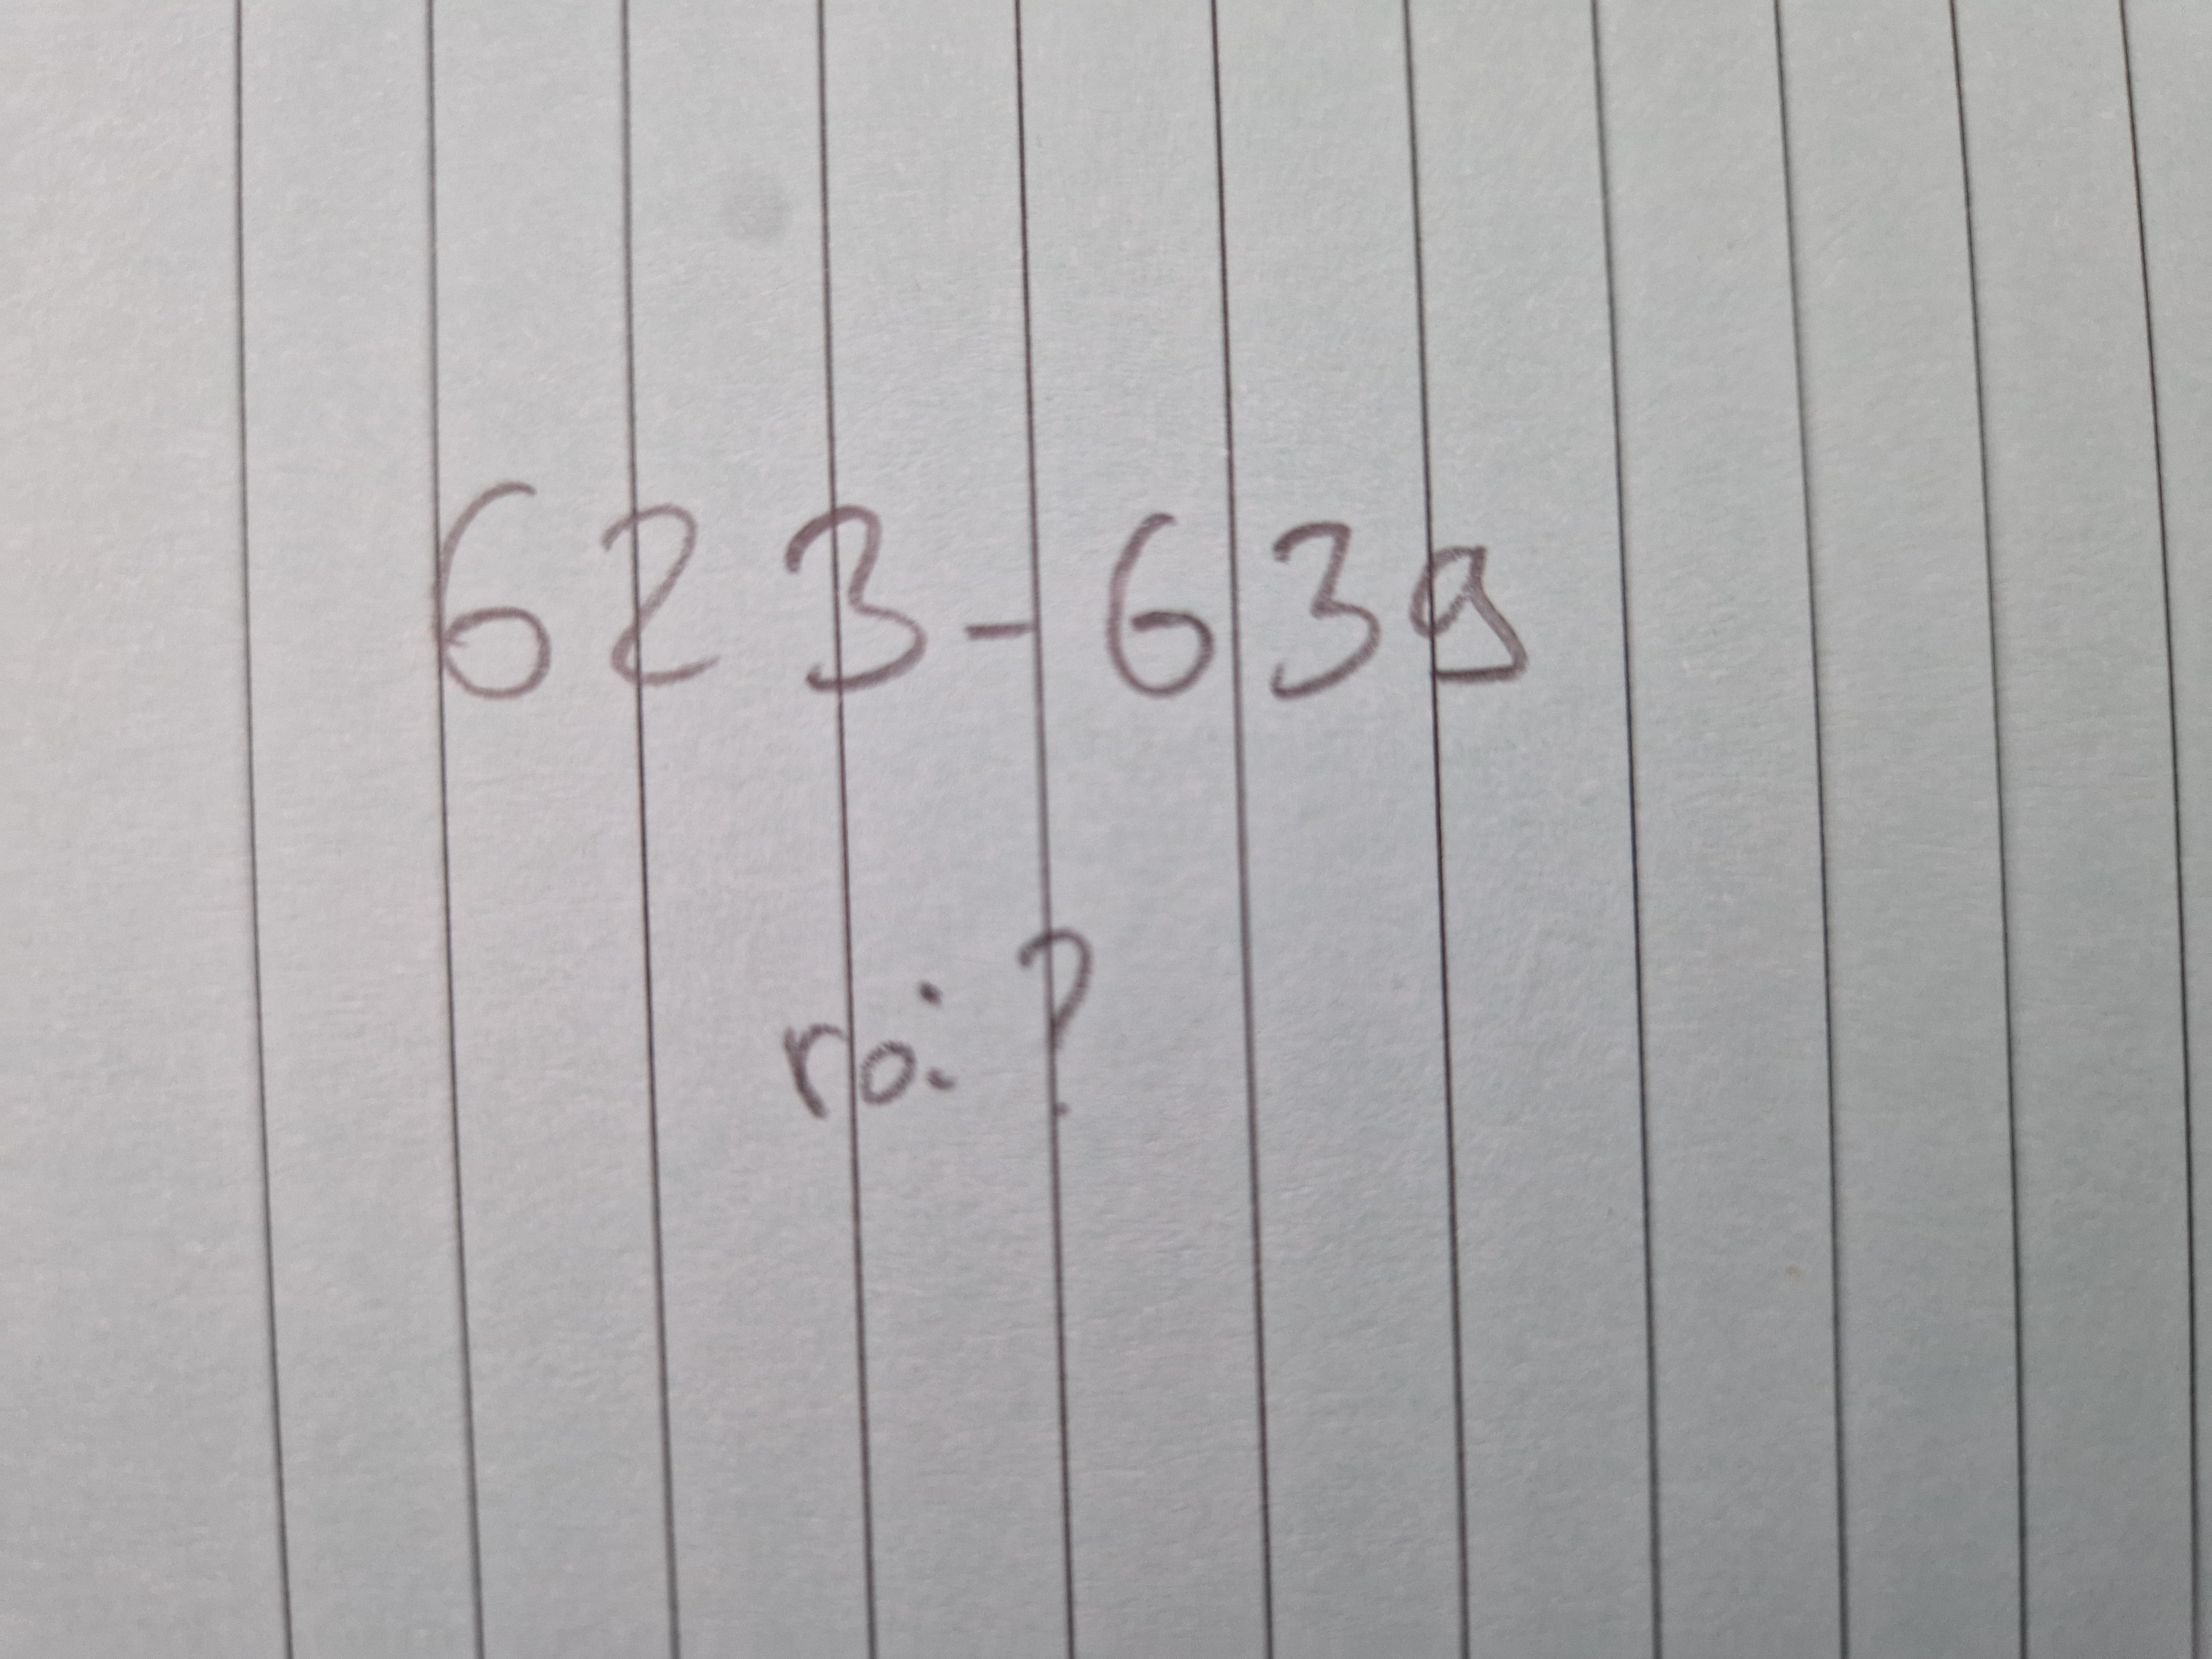 623-639
roi?